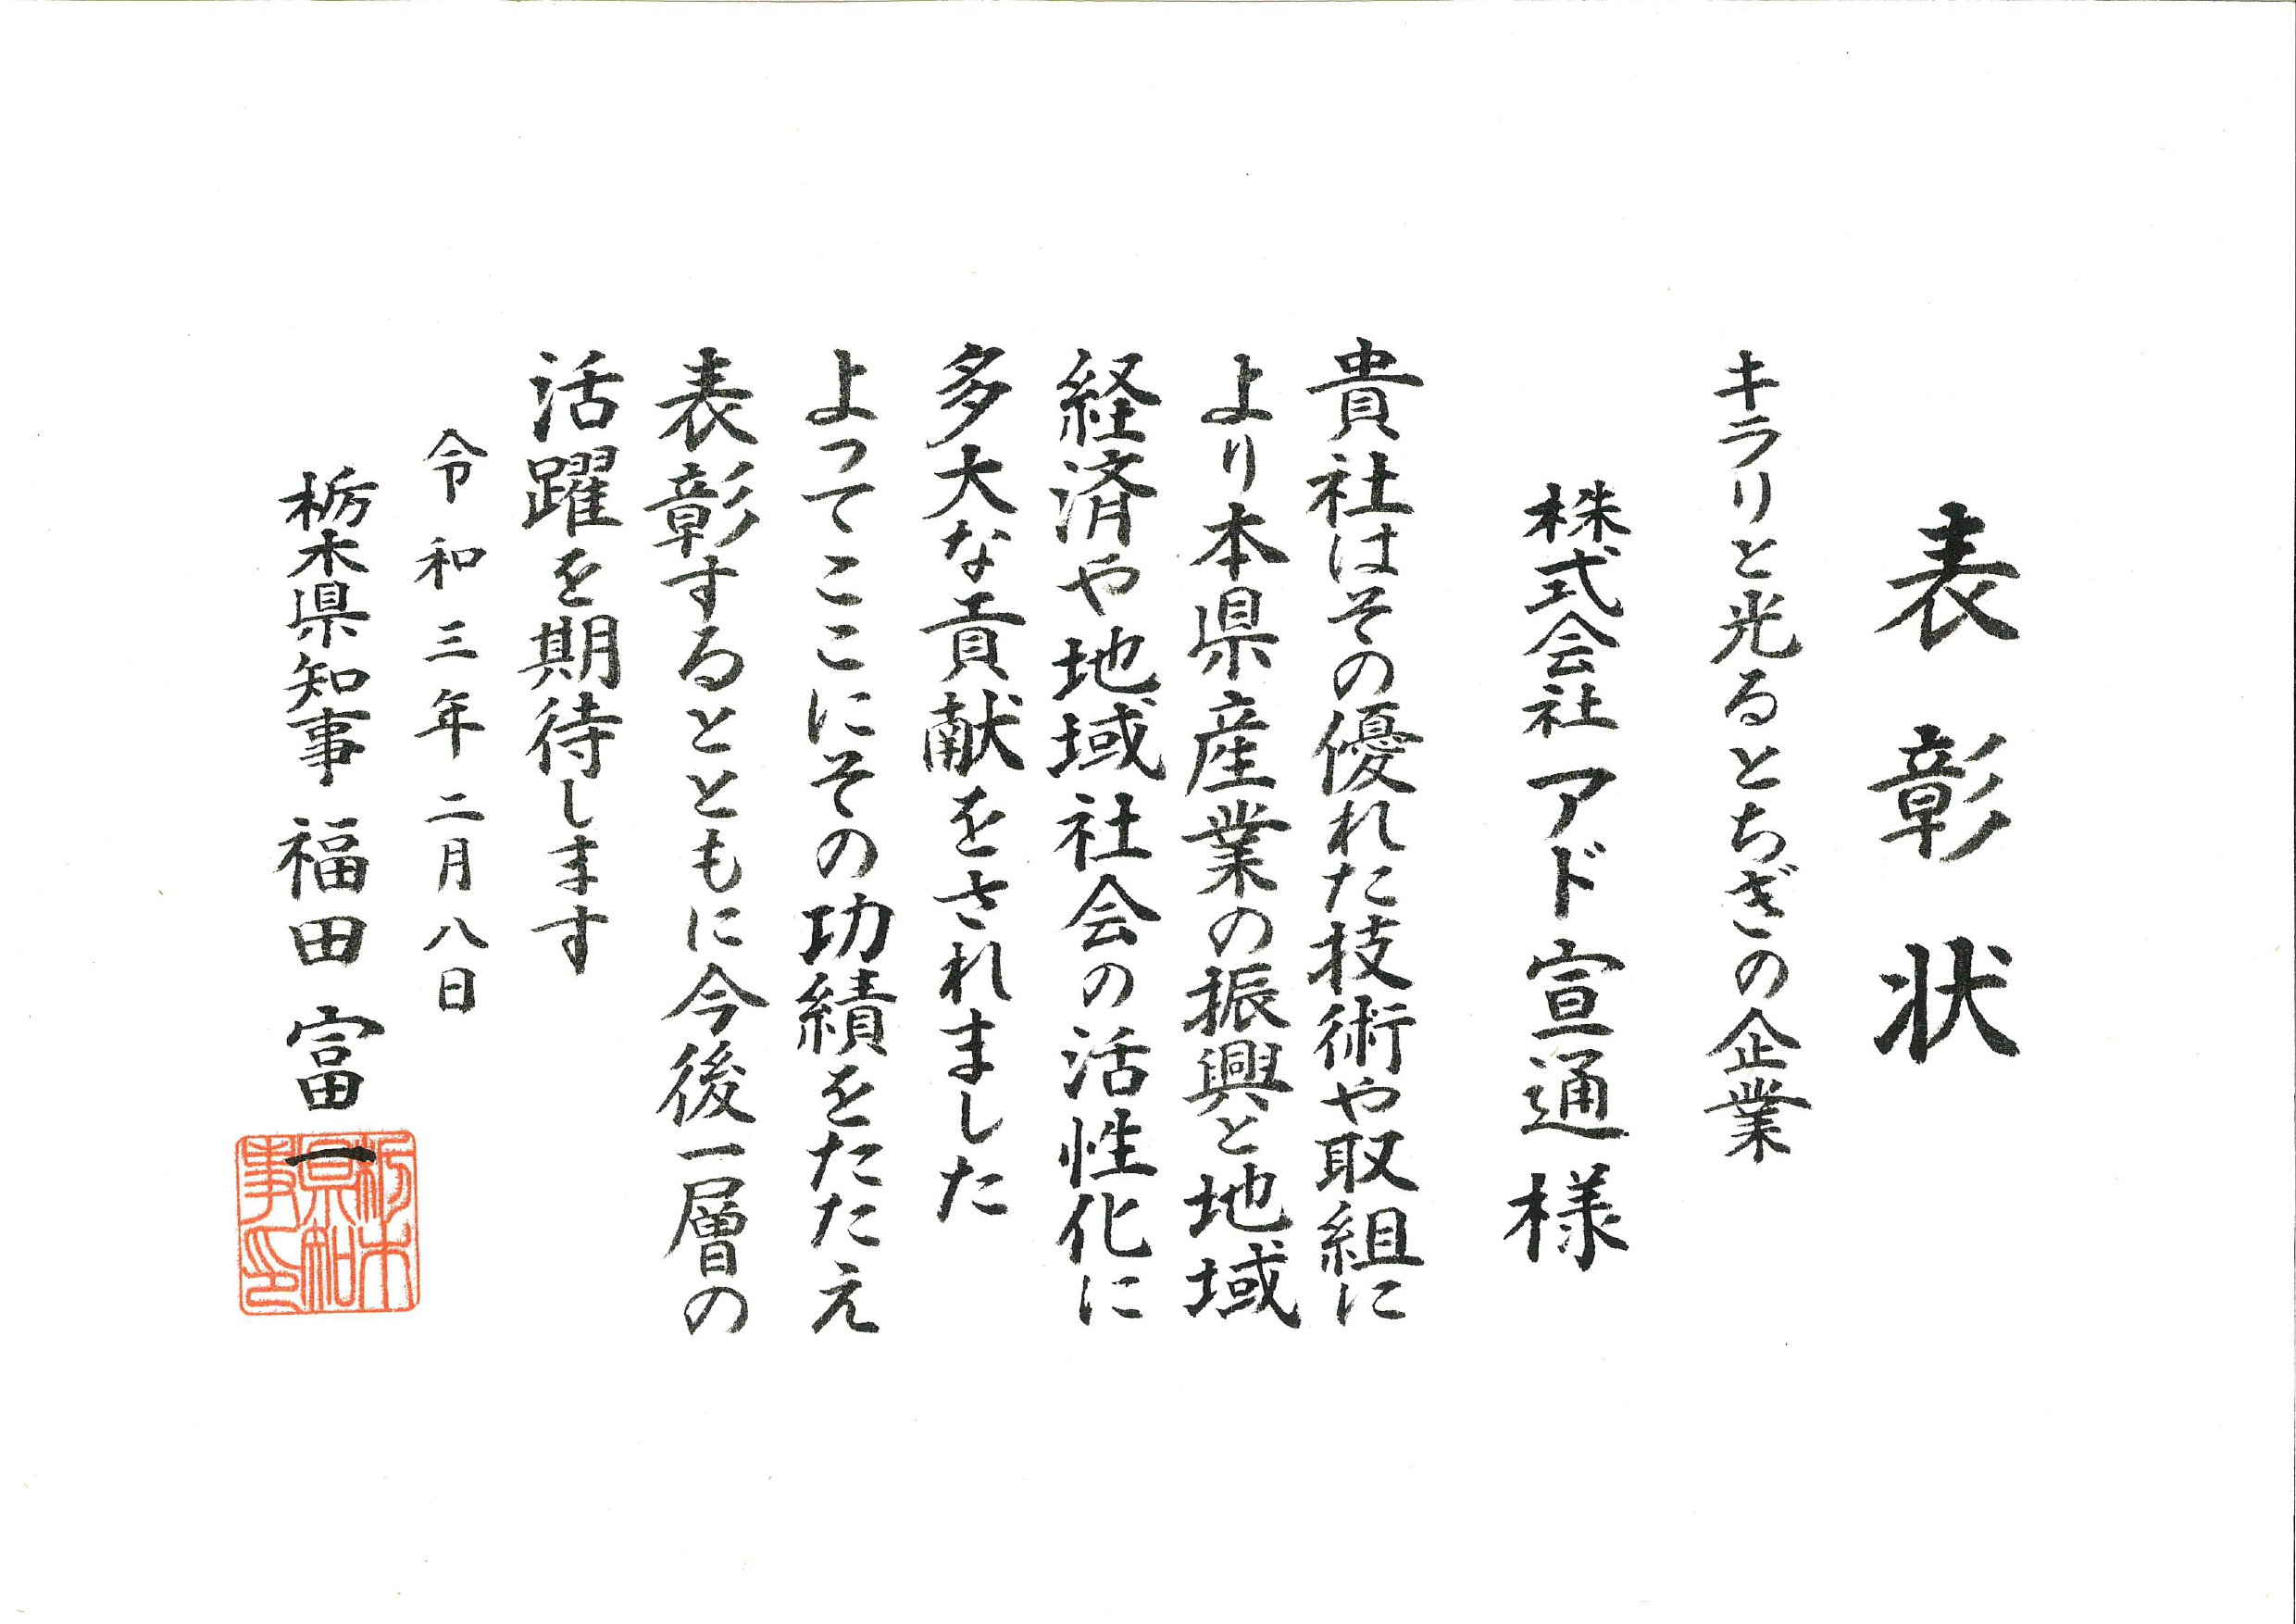 表彰状
キラリと光るとちぎの企業
株式会社アド宣通様
貴社はその優れた技術や取組に
より本県産業の振興と地域
経済や地域社会の活性化に
多大な貢献をされました
よってここにその功績をたたえ
表彰するとともに今後一層の
活躍を期待します
令和三年二月八日
栃木県知事福田富一
栃木
県知
事印